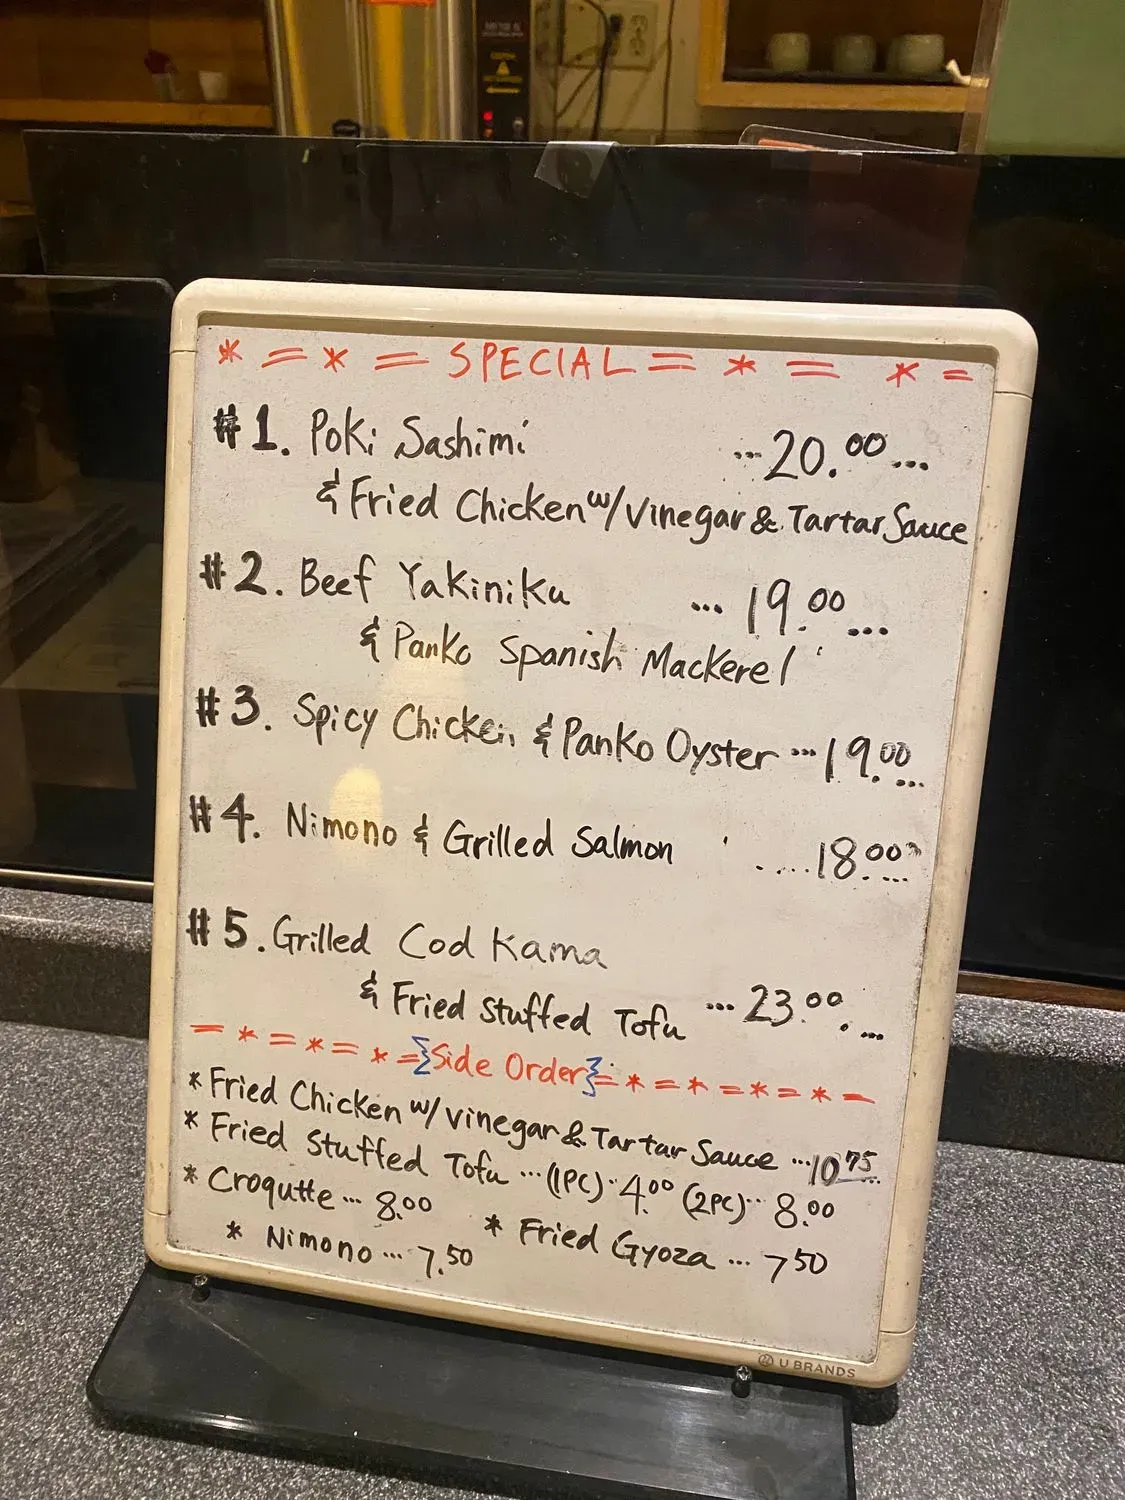 * = * = SPECIAL = * = * =
#1. Poki Sashimi ...20.00...
& Fried Chicken w/ Vinegar & Tartar Sauce
#2. Beef Yakiniku ... 19.00...
& Panko Spanish Mackerel
#3. Spicy Chicken & Panko Oyster ...19.00...
#4. Nimono & Grilled Salmon ....18.00...
#5. Grilled Cod Kama
& Fried Stuffed Tofu ... 23.00...
= * = * = * = {Side Order} = * = * = * = * =
* Fried Chicken w/ Vinegar & Tartar Sauce ...10 75
* Fried Stuffed Tofu ... (1PC).. 4.00 (2PC)... 8.00
* Croqutte ... 8.00 * Fried Gyoza ... 7 50
* Nimono ... 7.50
U BRANDS